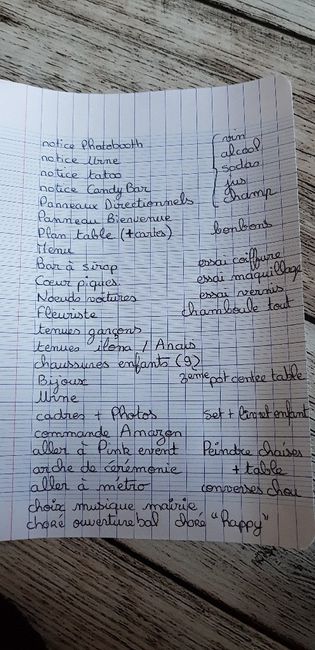 notice Photobooth
notice Urne
notice tatoo
notice Candy Bar
Panneaux Directionnels
Panneau Bienvenue
Plan table (+cartes)
Menu
Bar à sirop
Cœur piques
Noeuds voitures
Fleuriste
tenues garçons
tenues ilona / Anaïs
chaussures enfants (9)
Bijoux
Urne
cadres + Photos
commande Amazon
aller à Pink event
arche de cérémonie
aller à métro
choix musique mairie
choré ouverture bal
vin
alcool
sodas
jus
champ
bonbons
essai coiffure
essai maquillage
essai vernis
chamboule tout
3eme pot centre table
Set + livret enfant
Peindre chaises
+ table
converses chou
choré "happy"